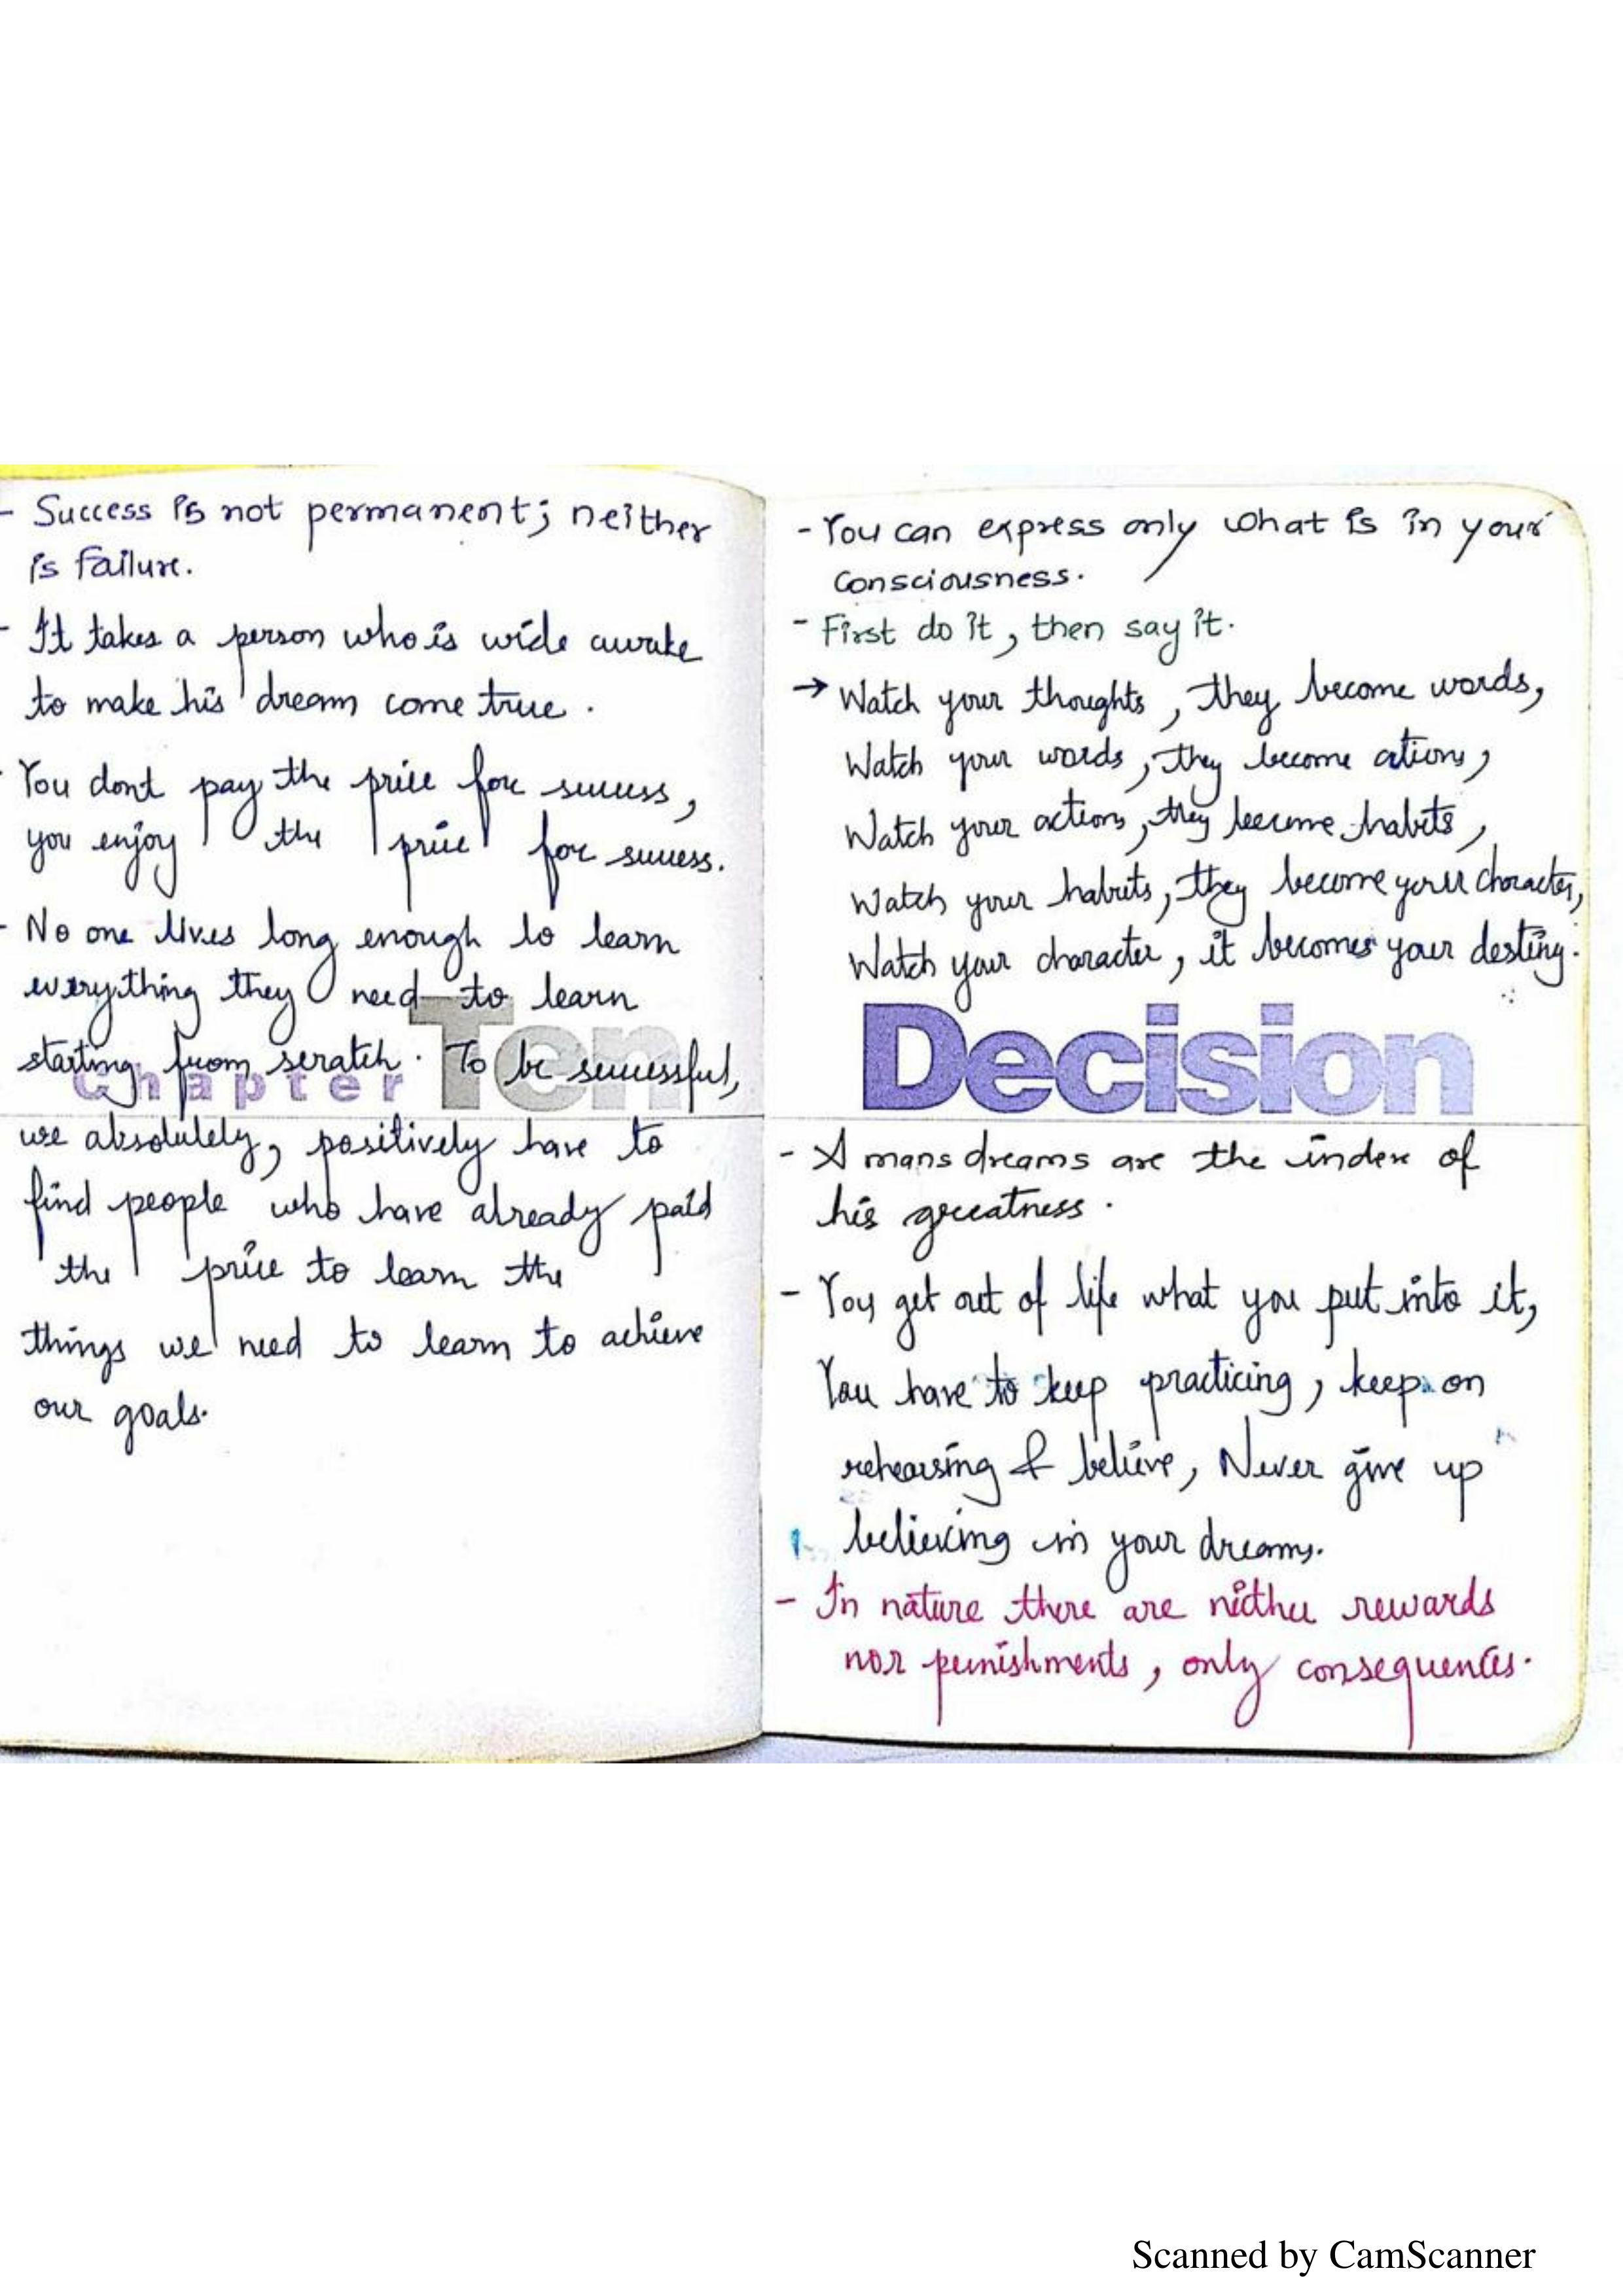 - Success is not permanent; neither
is failure.
- It takes a person who is wide awake
to make his dream come true.
- You dont pay the price for success,
you enjoy the price for success.
- No one lives long enough to learn
everything they need to learn
starting from scratch. To be successful,
Chapter Ten
we absolutely, positively have to
find people who have already paid
the price to learn the
things we need to learn to achieve
our goals.
- You can express only what is in your
consciousness.
- First do it, then say it.
→ Watch your thoughts, they become words,
Watch your words, they become ations,
Watch your actions, they become habits,
Watch your habits, they become your character,
Watch your character, it becomes your destiny.
Decision
- A mans dreams are the index of
his greatness.
- You get out of life what you put into it,
You have to keep practicing, keep on
rehearsing & believe, Never give up
believing in your dreams.
- In nature there are neither rewards
nor punishments, only consequences.
Scanned by CamScanner